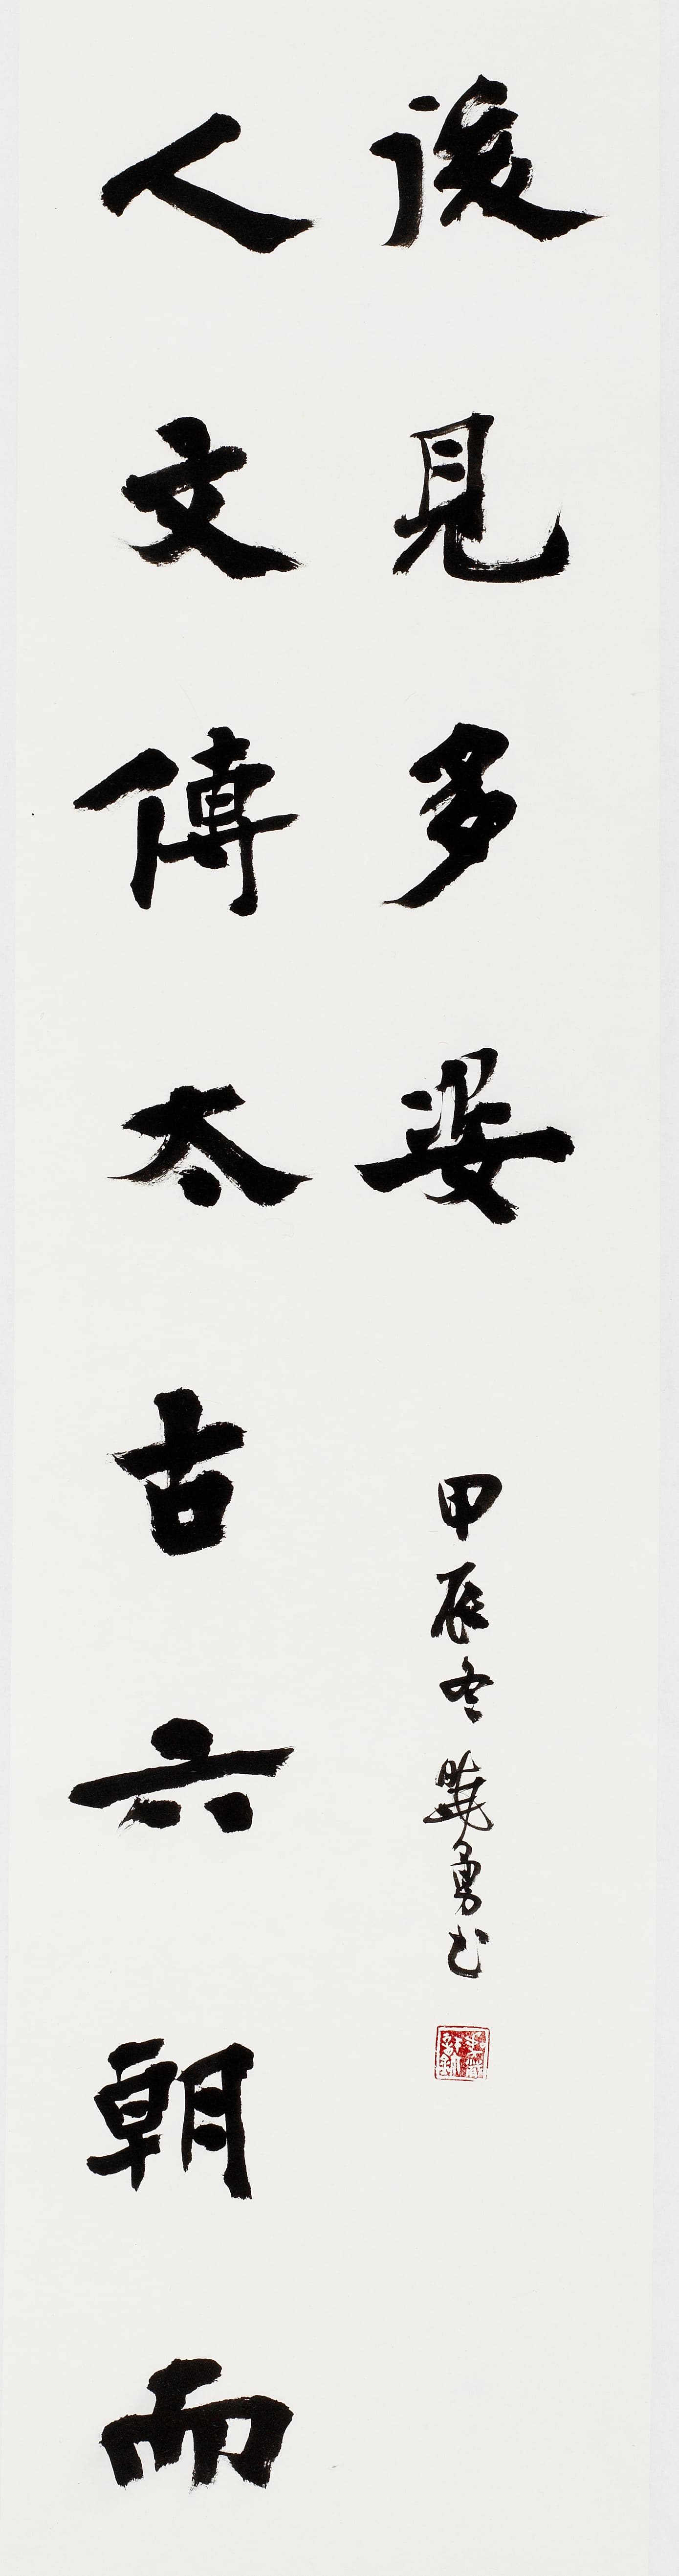 人文傳太古六朝而
後見多姿
甲辰冬曉勇书